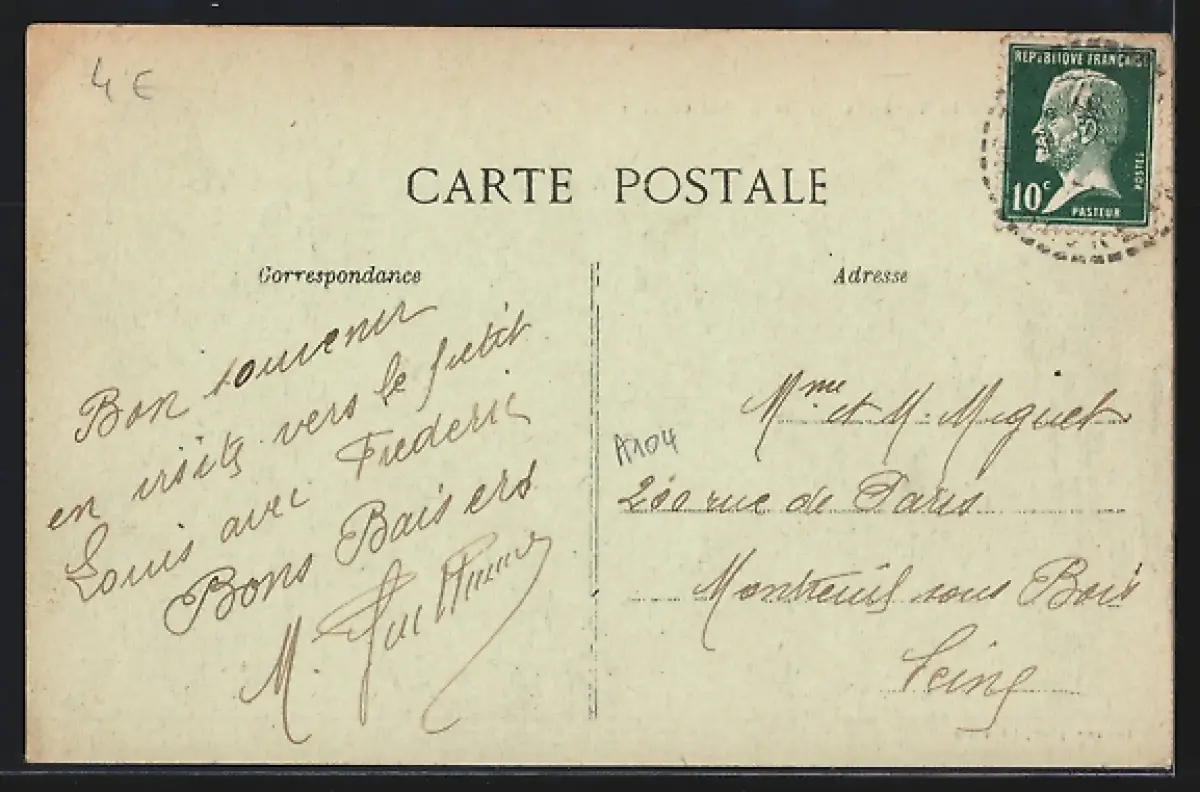 4 €
REPUBLIQUE FRANÇAISE
POSTES
10 c
PASTEUR
CARTE POSTALE
Correspondance
Bon souvenir
en visite vers le petit
Louis avec Frederic
Bons Baisers
M.
Adresse
Mme et M. Miguet
A104
200 rue de Paris
Montreuil sous Bois
Seine